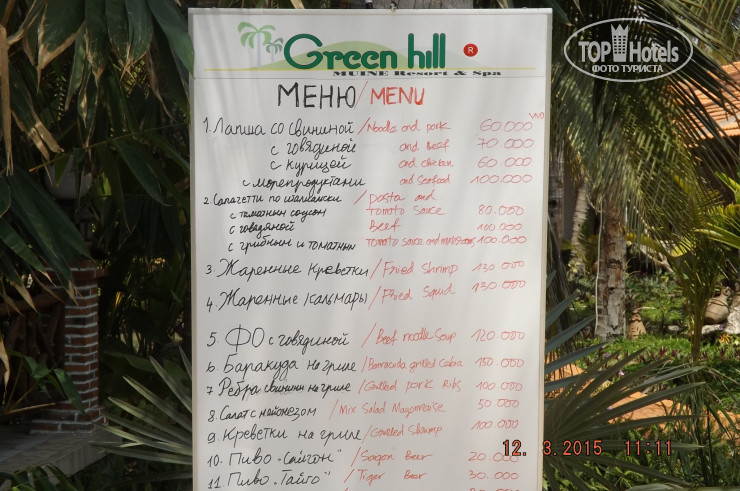 Green hill ®
MUINE Resort & Spa
TOPHotels
ФОТО ТУРИСТА
МЕНЮ / MENU
VND
1. Лапша со свининой / Noodle and pork 60.000
с говядиной and Beef 70.000
с курицей and chicken 60.000
с морепродуктами and Seafood 100.000
2. Спагетти по / pasta and
с соусом tomato sauce 80.000
с говядиной Beef 100.000
с грибным и томатным Tomato sauce and mushrooms 100.000
3. Жаренные креветки / Fried Shrimp 130.000
4. Жаренные кальмары / Fried Squid 130.000
5. ФО с говядиной / Beef noodle soup 120.000
6. Баракуда на гриле / Barracuda grilled 150.000
7. Ребра свинини на гриле / Grilled pork Ribs 100.000
8. Салат с майонезом / Mix Salad Mayonnaise 50.000
9. Креветки на гриле / Grilled Shrimp 100.000
10. Пиво "Сайгон" / Saigon Beer 20.000
11. Пиво "Тайго" / Tiger Beer 30.000
12. 3.2015 11:11